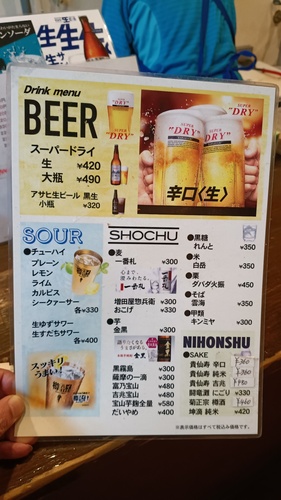 Drink menu
BEER
スーパードライ
生 ¥420
大瓶 ¥490
アサヒ生ビール 黒生
小瓶 ¥320
SUPER "DRY"
SUPER "DRY"
SUPER "DRY"
辛口〈生〉
SOUR
●チューハイ
プレーン
レモン
ライム
カルピス
シークァーサー
各¥330
生ゆずサワー
生すだちサワー
各¥400
スッキリ
うまい!
SHOCHU
●麦
一番札 ¥300
一番札
増田屋惣兵衛 ¥300
おこげ ¥330
●芋
金黒 ¥300
金黒
黒霧島 ¥300
薩摩の一滴 ¥300
富乃宝山 ¥480
吉兆宝山 ¥480
宝山芋麹全量 ¥580
だいやめ ¥400
●黒糖
れんと ¥350
●米
白岳 ¥350
●栗
ダバダ火振 ¥450
●そば
雲海 ¥350
●甲類
キンミヤ ¥300
NIHONSHU
●SAKE
貴仙寿 辛口 ¥360
貴仙寿 純米 ¥380
貴仙寿 吉兆
闘竜灘 にごり ¥330
菊正宗 樽酒 ¥440
坤滴 純米 ¥420
※表示価格はすべて税込み価格です。